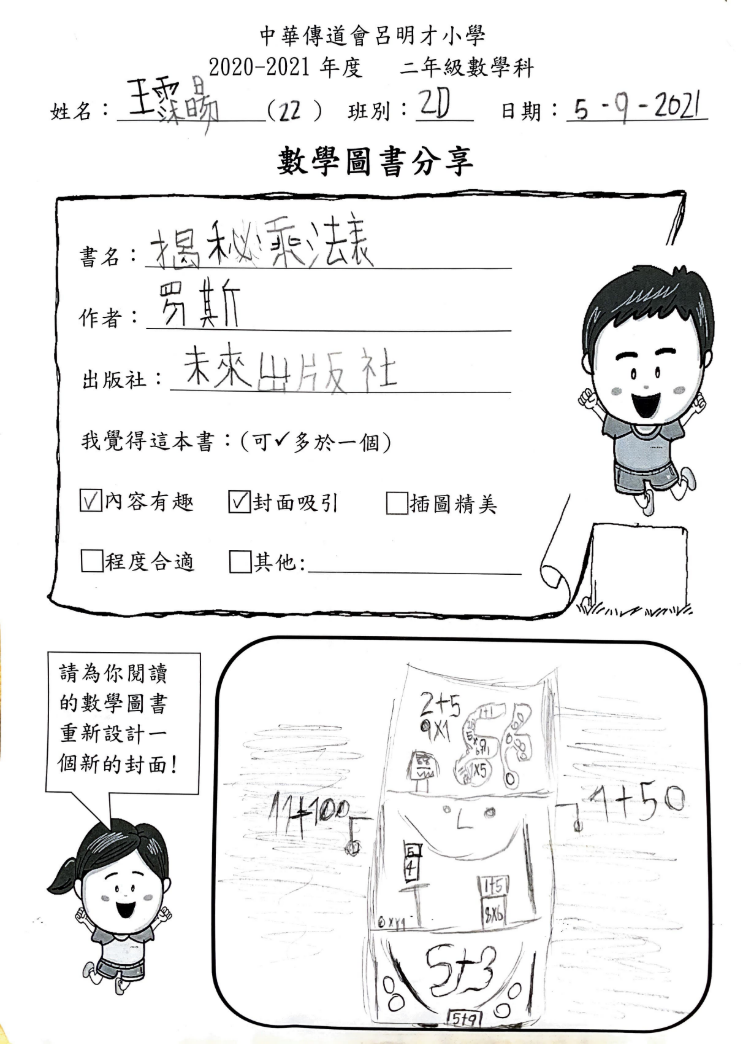 中華傳道會呂明才小學
2020-2021 年度 二年級數學科
姓名：王霂暘 (22) 班別：2D 日期：5-9-2021
數學圖書分享
書名：揭秘乘法表
作者：罗斯
出版社：未來出版社
我覺得這本書：(可✓多於一個)
☑內容有趣 ☑封面吸引 □插圖精美
□程度合適 □其他:
請為你閱讀
的數學圖書
重新設計一
個新的封面!
2+5
9X1
1+1
1X5
11+100
1+50
5
4
1+5
8X6
5+3
5+9